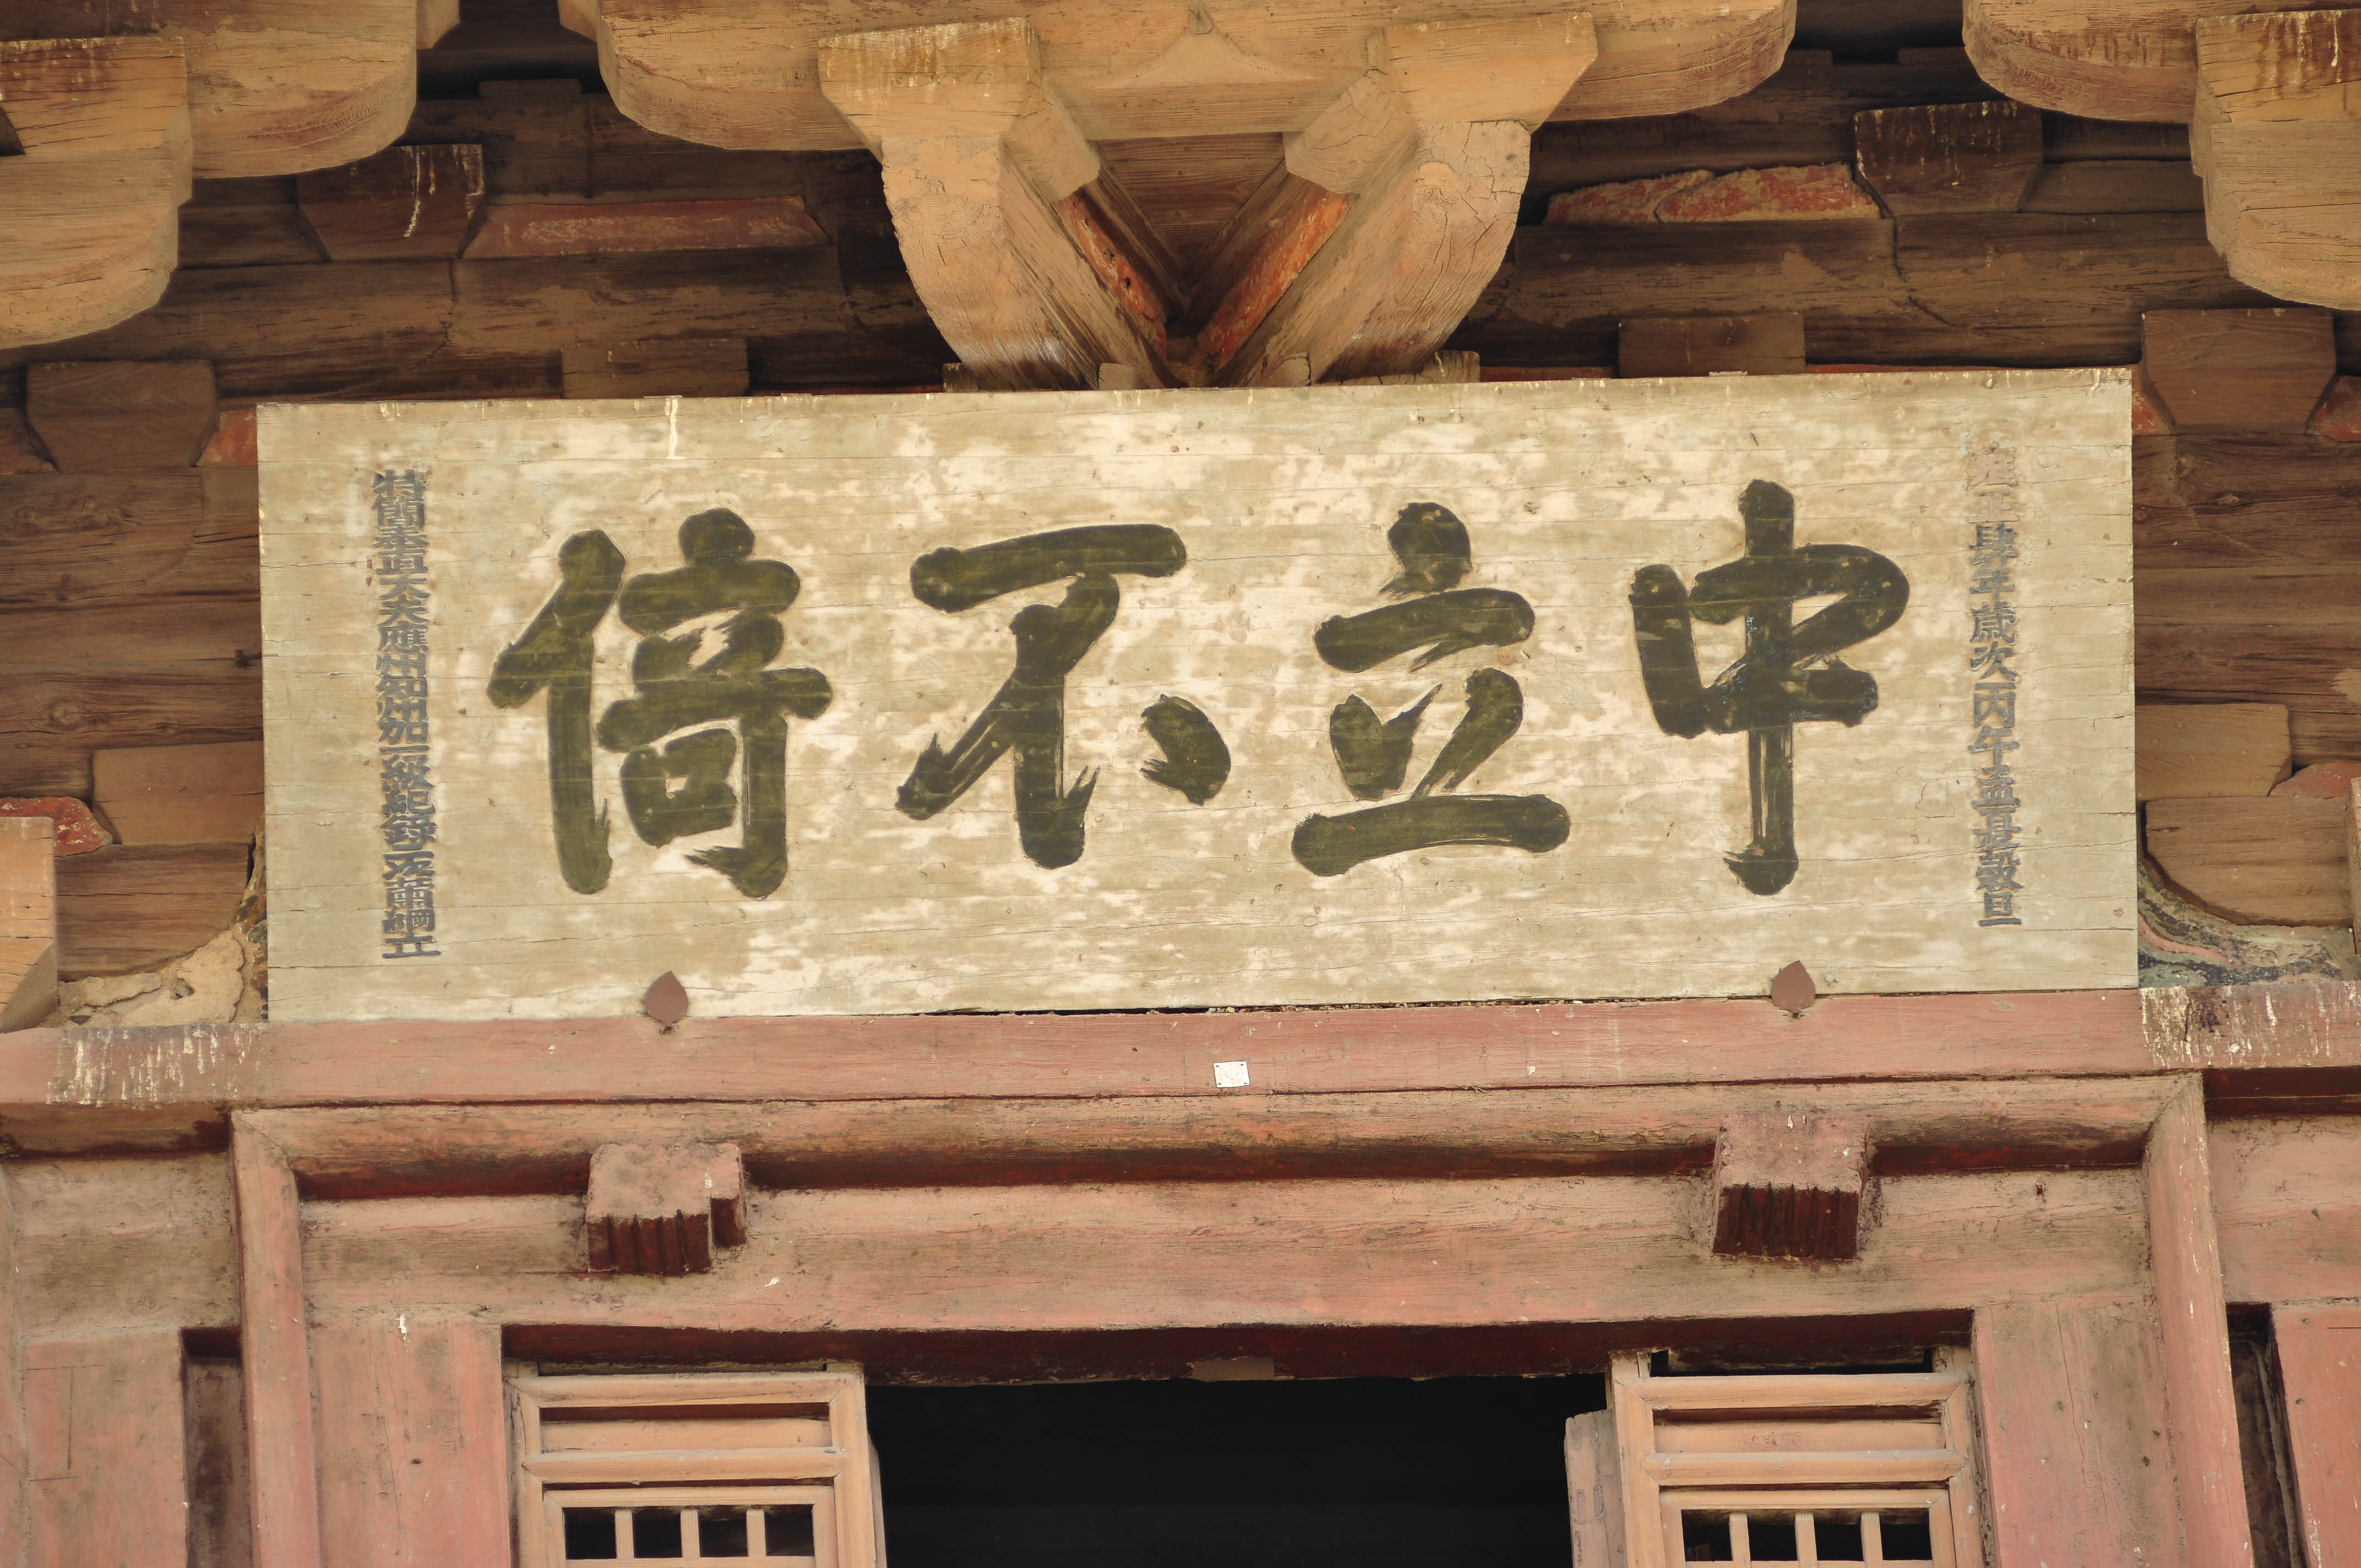 雍正肆年歲次丙午孟夏穀旦
中立不倚
特簡奉直大夫應州知州加一級紀錄一次蕭綱立